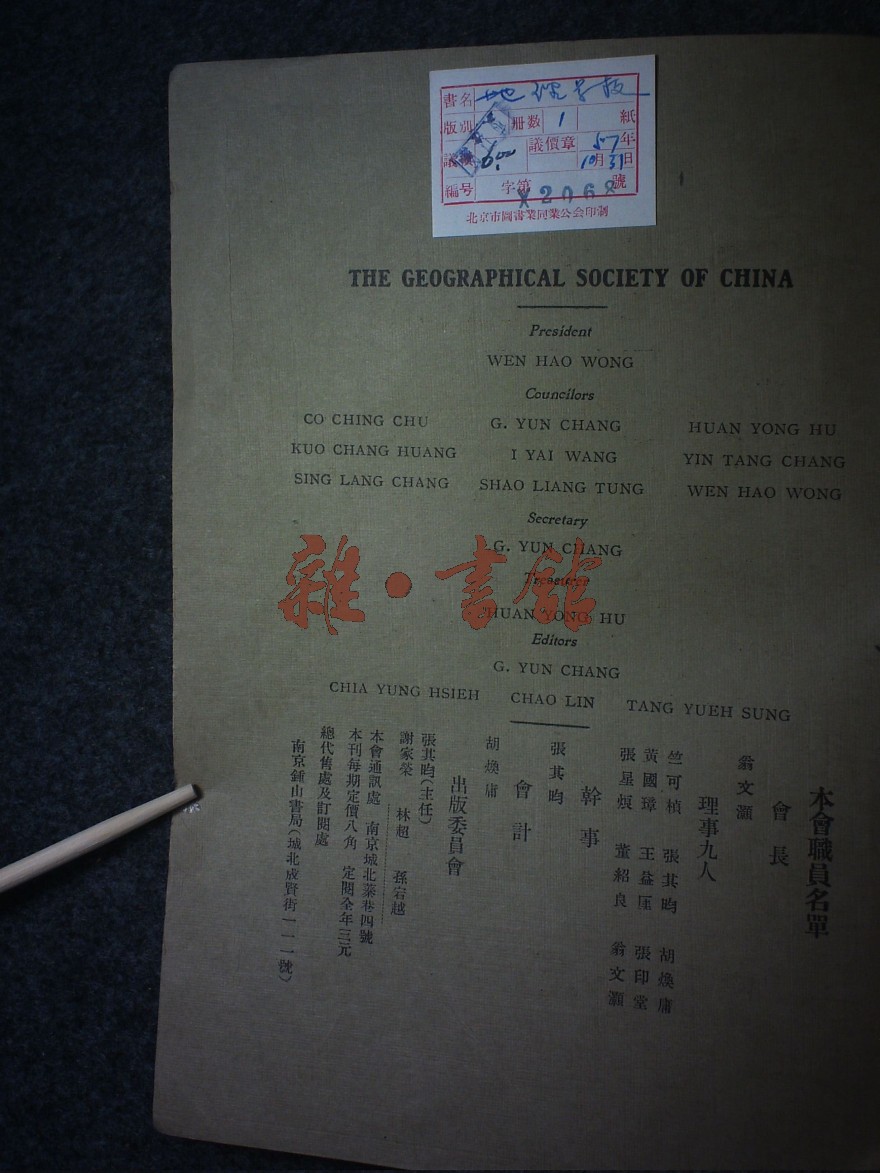 書名 地理学报
版別 册数 1 紙
議價 6.00 議價章 57年
10月31日
編号 字第 X2068 號
北京市圖書業同業公会印制
THE GEOGRAPHICAL SOCIETY OF CHINA
President
WEN HAO WONG
Councilors
CO CHING CHU G. YUN CHANG HUAN YONG HU
KUO CHANG HUANG I YAI WANG YIN TANG CHANG
SING LANG CHANG SHAO LIANG TUNG WEN HAO WONG
Secretary
G. YUN CHANG
Treasurer
HUAN YONG HU
Editors
G. YUN CHANG
CHIA YUNG HSIEH CHAO LIN TANG YUEH SUNG
雜·書館
本會職員名單
會長
翁文灝
理事九人
竺可楨 張其昀 胡煥庸
黃國璋 王益厓 張印堂
張星烺 董紹良 翁文灝
幹事
張其昀
會計
胡煥庸
出版委員會
張其昀(主任)
謝家榮 林超 孫宕越
本會通訊處 南京城北蓁巷四號
本刊每期定價八角 定閱全年三元
總代售處及訂閱處
南京鍾山書局(城北成賢街一一一號)